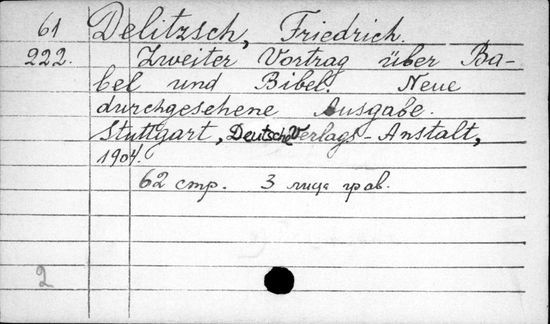 61 Delitzsch, Friedrich.
222. Zweiter Vortrag über Ba-
bel und Bibel. Neue
durchgesehene Ausgabe.
Stuttgart, Deutsche Verlags-Anstalt,
1904.
62 стр. 3 лица грав.
2